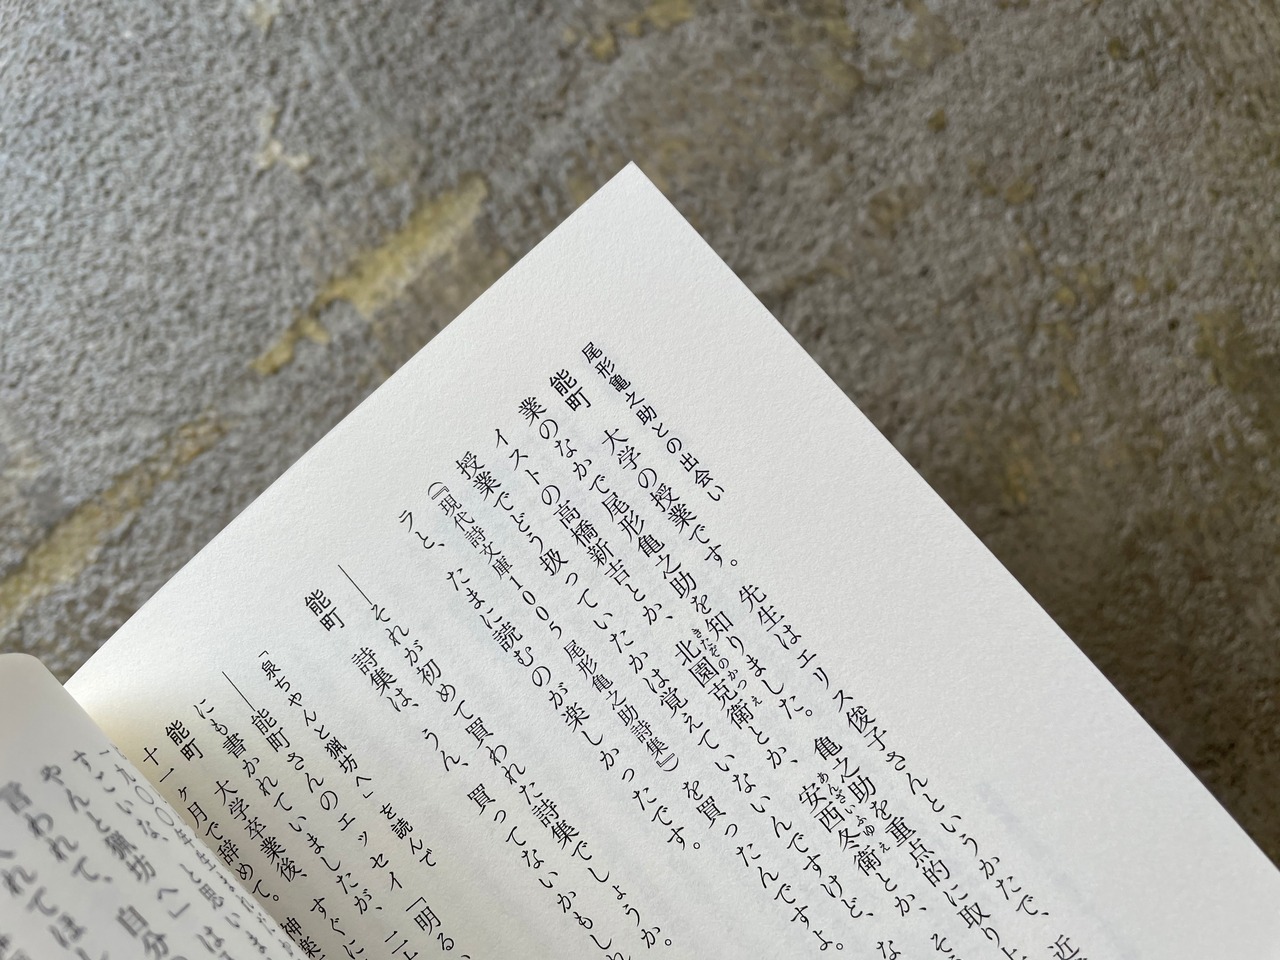 尾形亀之助との出会い
能町　大学の授業です。先生はエリス俊子さんというかたで、近
業のなかで尾形亀之助を知りました。亀之助を重点的に取り上
イストの高橋新吉とか、北園克衛とか、安西冬衛とか、そ
授業でどう扱っていたかは覚えていないんですけど、な
(『現代詩文庫1005　尾形亀之助詩集』)を買ったんですよ。
ラと、たまに読むのが楽しかったです。
――それが初めて買われた詩集でしょうか。
能町　詩集は、うん、買ってないかもしれ
「泉ちゃんと猟坊へ」を読んで
――能町さんのエッセイ「明る
にも書かれていましたが、二十
能町　大学卒業後、すぐに
十一ヶ月で辞めて。神楽
すごいな、と思いま
やんと猟坊へ」は
言われて、自分
くれてほし